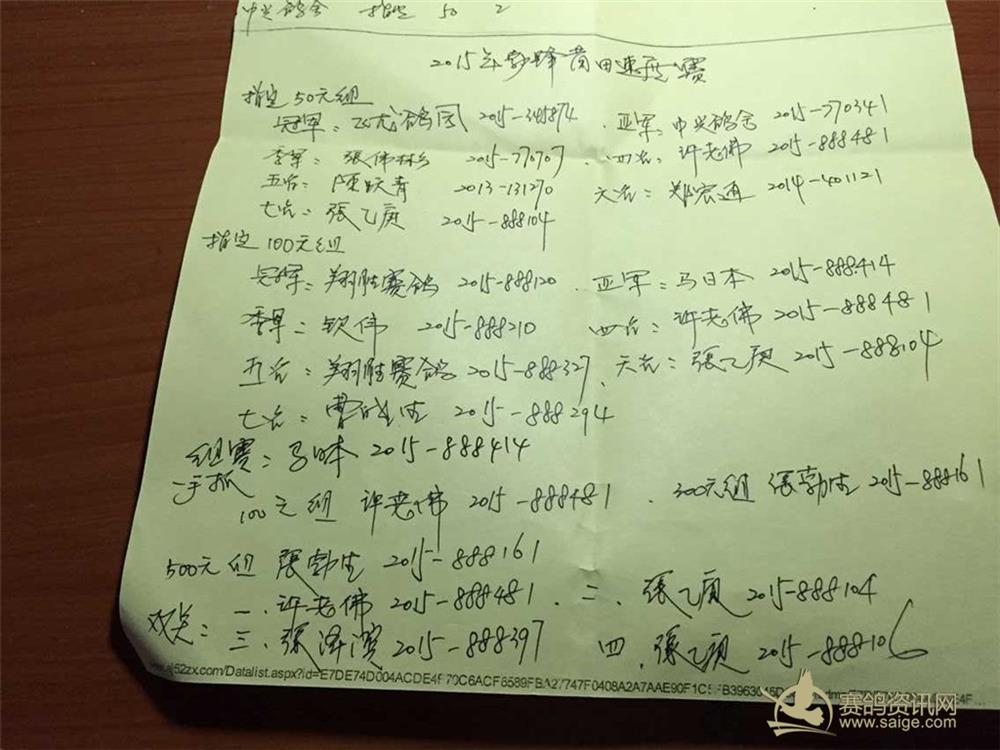 中兴鸽舍 指定 50 2
2015年 莆田速飞赛
指定50元组
冠军：飞龙鸽园 2015-345874 亚军：中兴鸽舍 2015-770341
季军：張伟彬 2015-770707 四名：许老佛 2015-888481
五名：陳跃青 2013-131270 六名：郑宏通 2014-401121
七名：張乙庚 2015-888104
指定100元组
冠军：翔胜赛鸽 2015-888120 亚军：马日本 2015-888414
季军：钦伟 2015-888210 四名：许老佛 2015-888481
五名：翔胜赛鸽 2015-888327 六名：張乙庚 2015-888104
七名：曹 2015-888294
组赛：马日本 2015-888414
一手抓
100元组 许老佛 2015-888481 300元组 張勃生 2015-888161
500元组 張勃生 2015-888161
双关：一、许老佛 2015-888481 二、張乙庚 2015-888104
三、張泽 2015-888397 四、張乙庚 2015-888106
赛鸽资讯网
www.saige.com